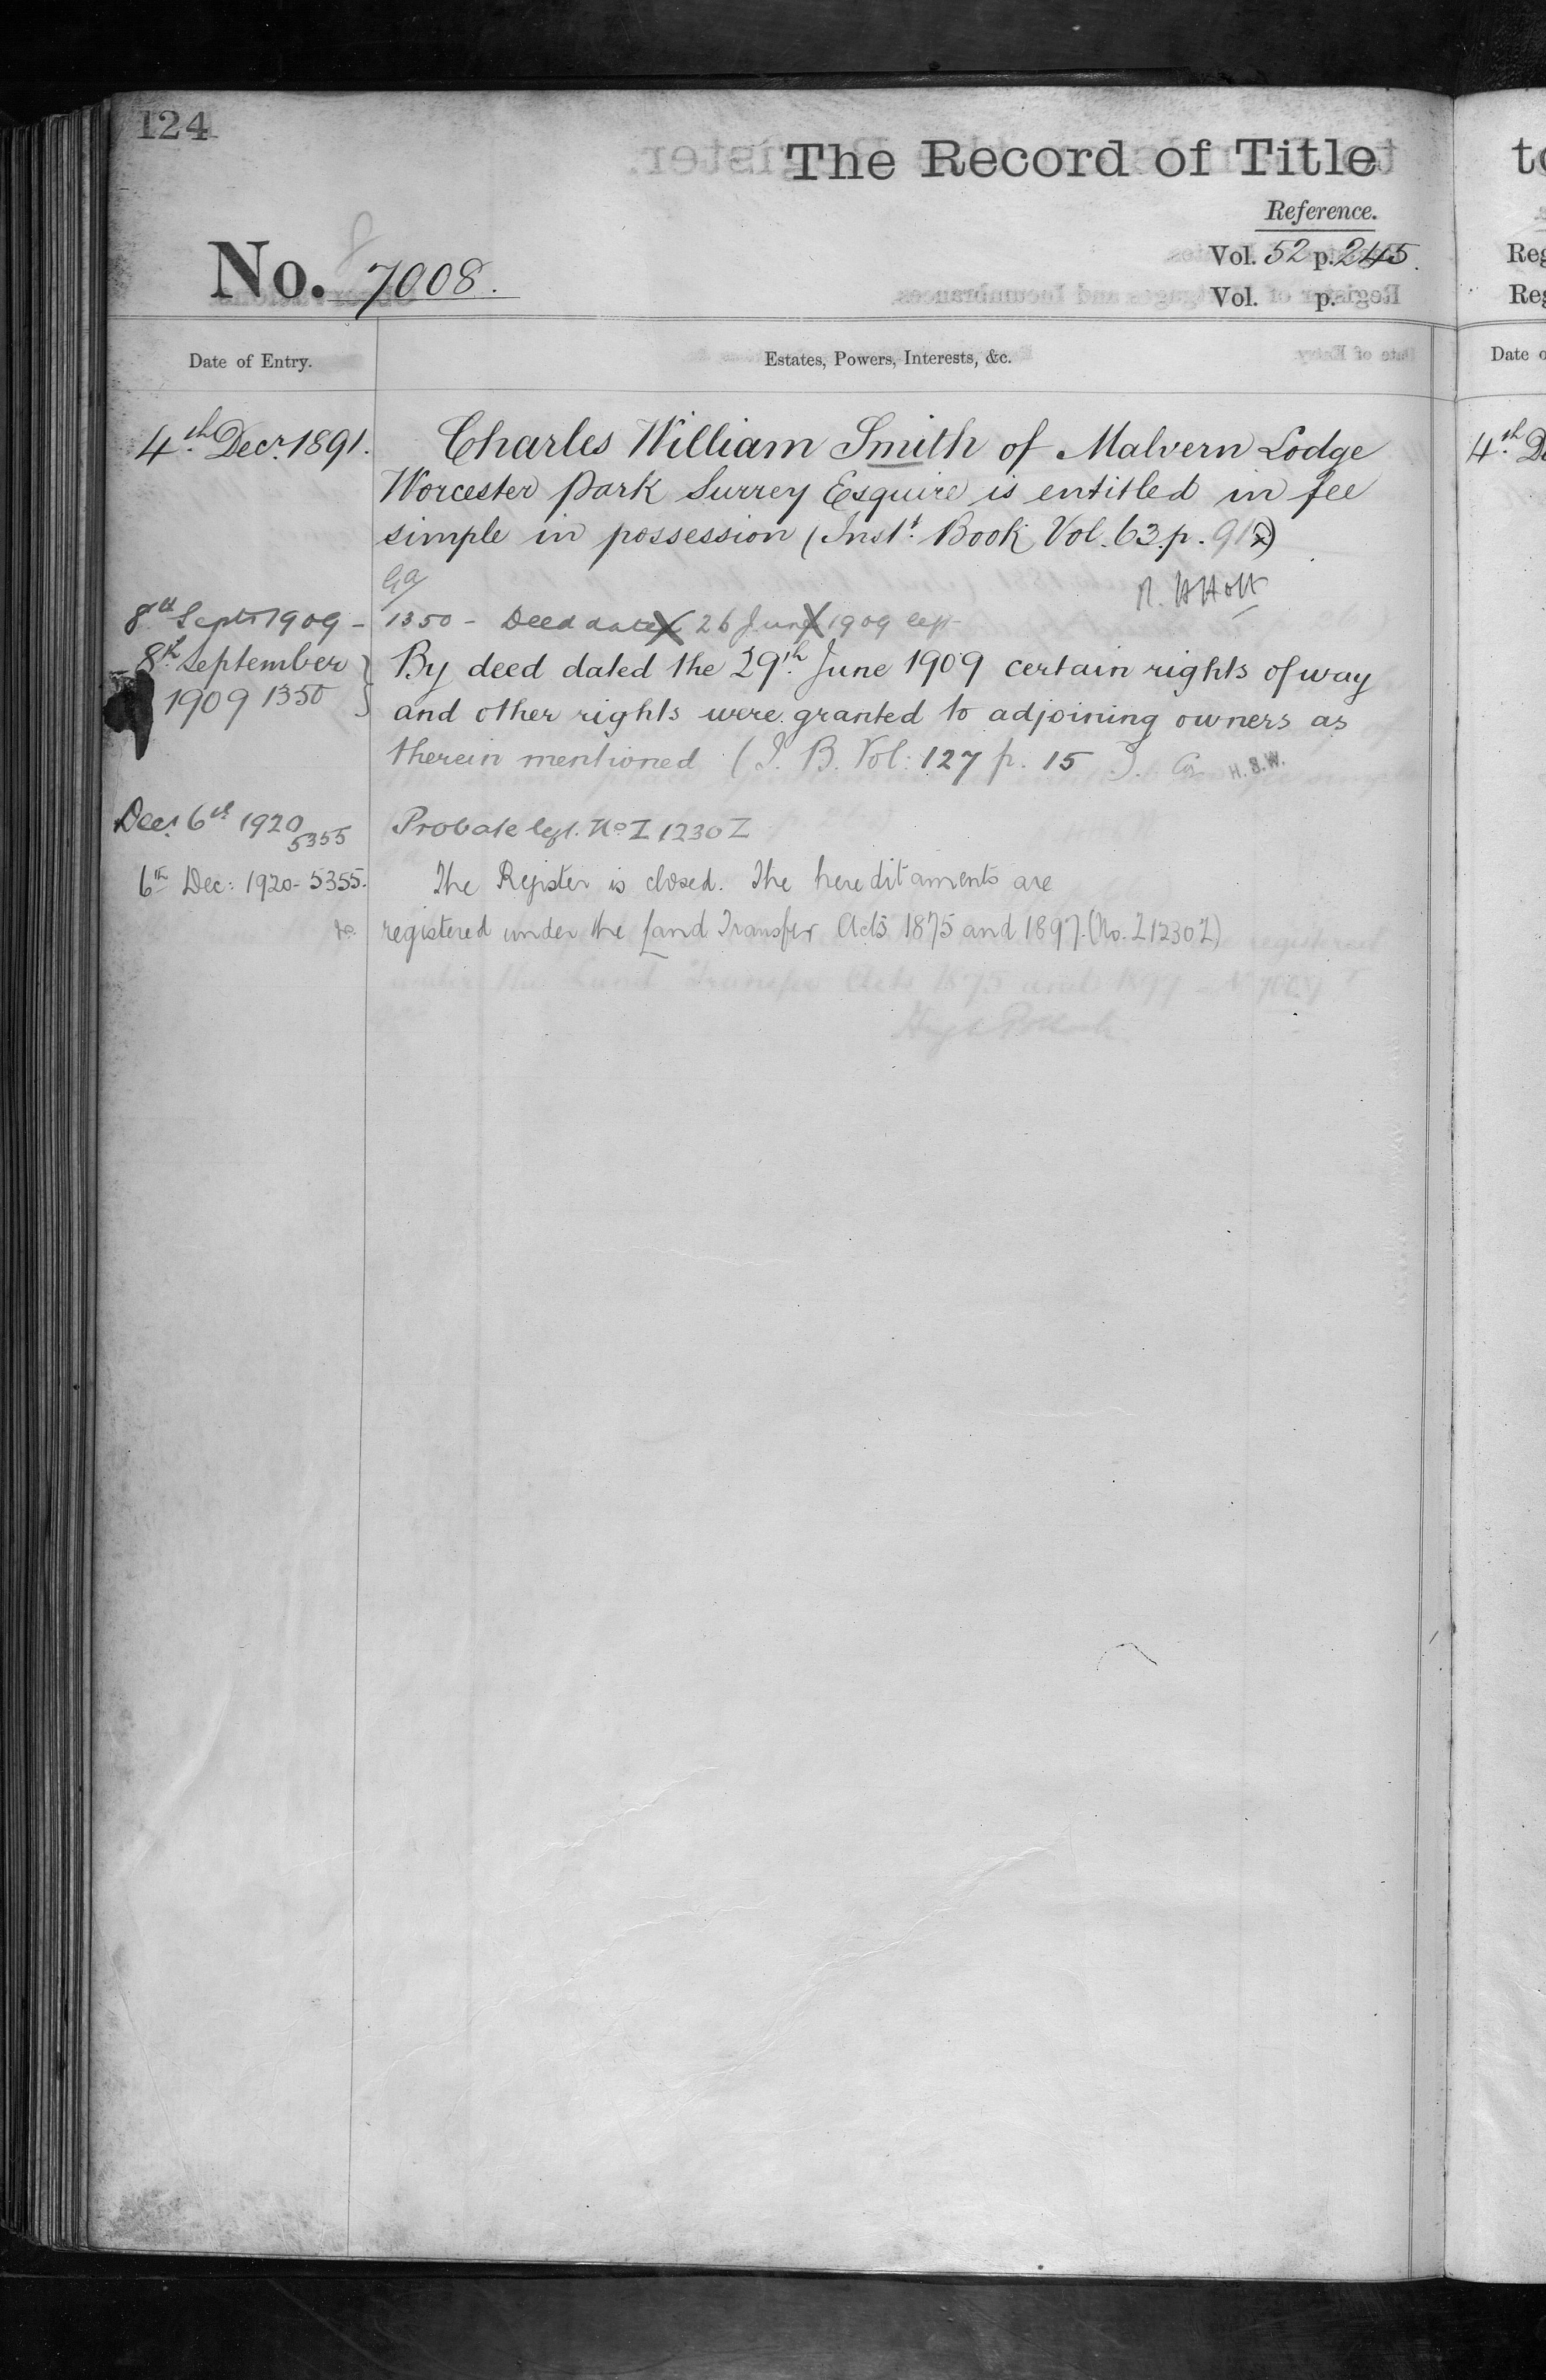 124
The Record of Title
Reference.
No. 7008.
Vol. 52 p. 245.
Vol. p.
Date of Entry.
Estates, Powers, Interests, &c.
4th Decr 1891.
Charles William Smith of Malvern Lodge
Worcester Park Surrey Esquire is entitled in fee
simple in possession (Instt Book Vol. 63. p. 91
8th Sept 1909 -
1350 - Deed dated 26 June 1909 left
8th September
1909 1350
By deed dated the 29th June 1909 certain rights of way
and other rights were granted to adjoining owners as
therein mentioned (I. B. Vol: 127 p. 15 ). H.S.W.
Decr 6th 1920
5355
Probate left. No Z 1230 Z
6th Dec: 1920 - 5355.
The Register is closed. The hereditaments are
do.
registered under the Land Transfer Acts 1875 and 1897. (No. Z 1230 Z)
4th
Date o
Reg
Reg
to